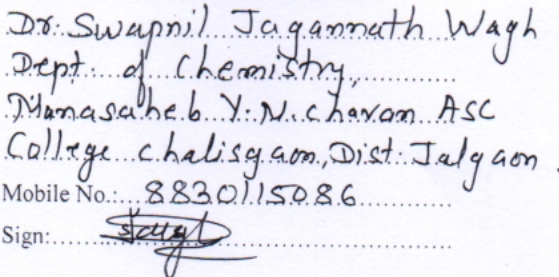 Dr. Swapnil Jagannath Wagh
Dept. of Chemistry,
Manasaheb Y. N. chavan ASC
College chalisgaon, Dist. Jalgaon.
Mobile No.: 8830115086
Sign: